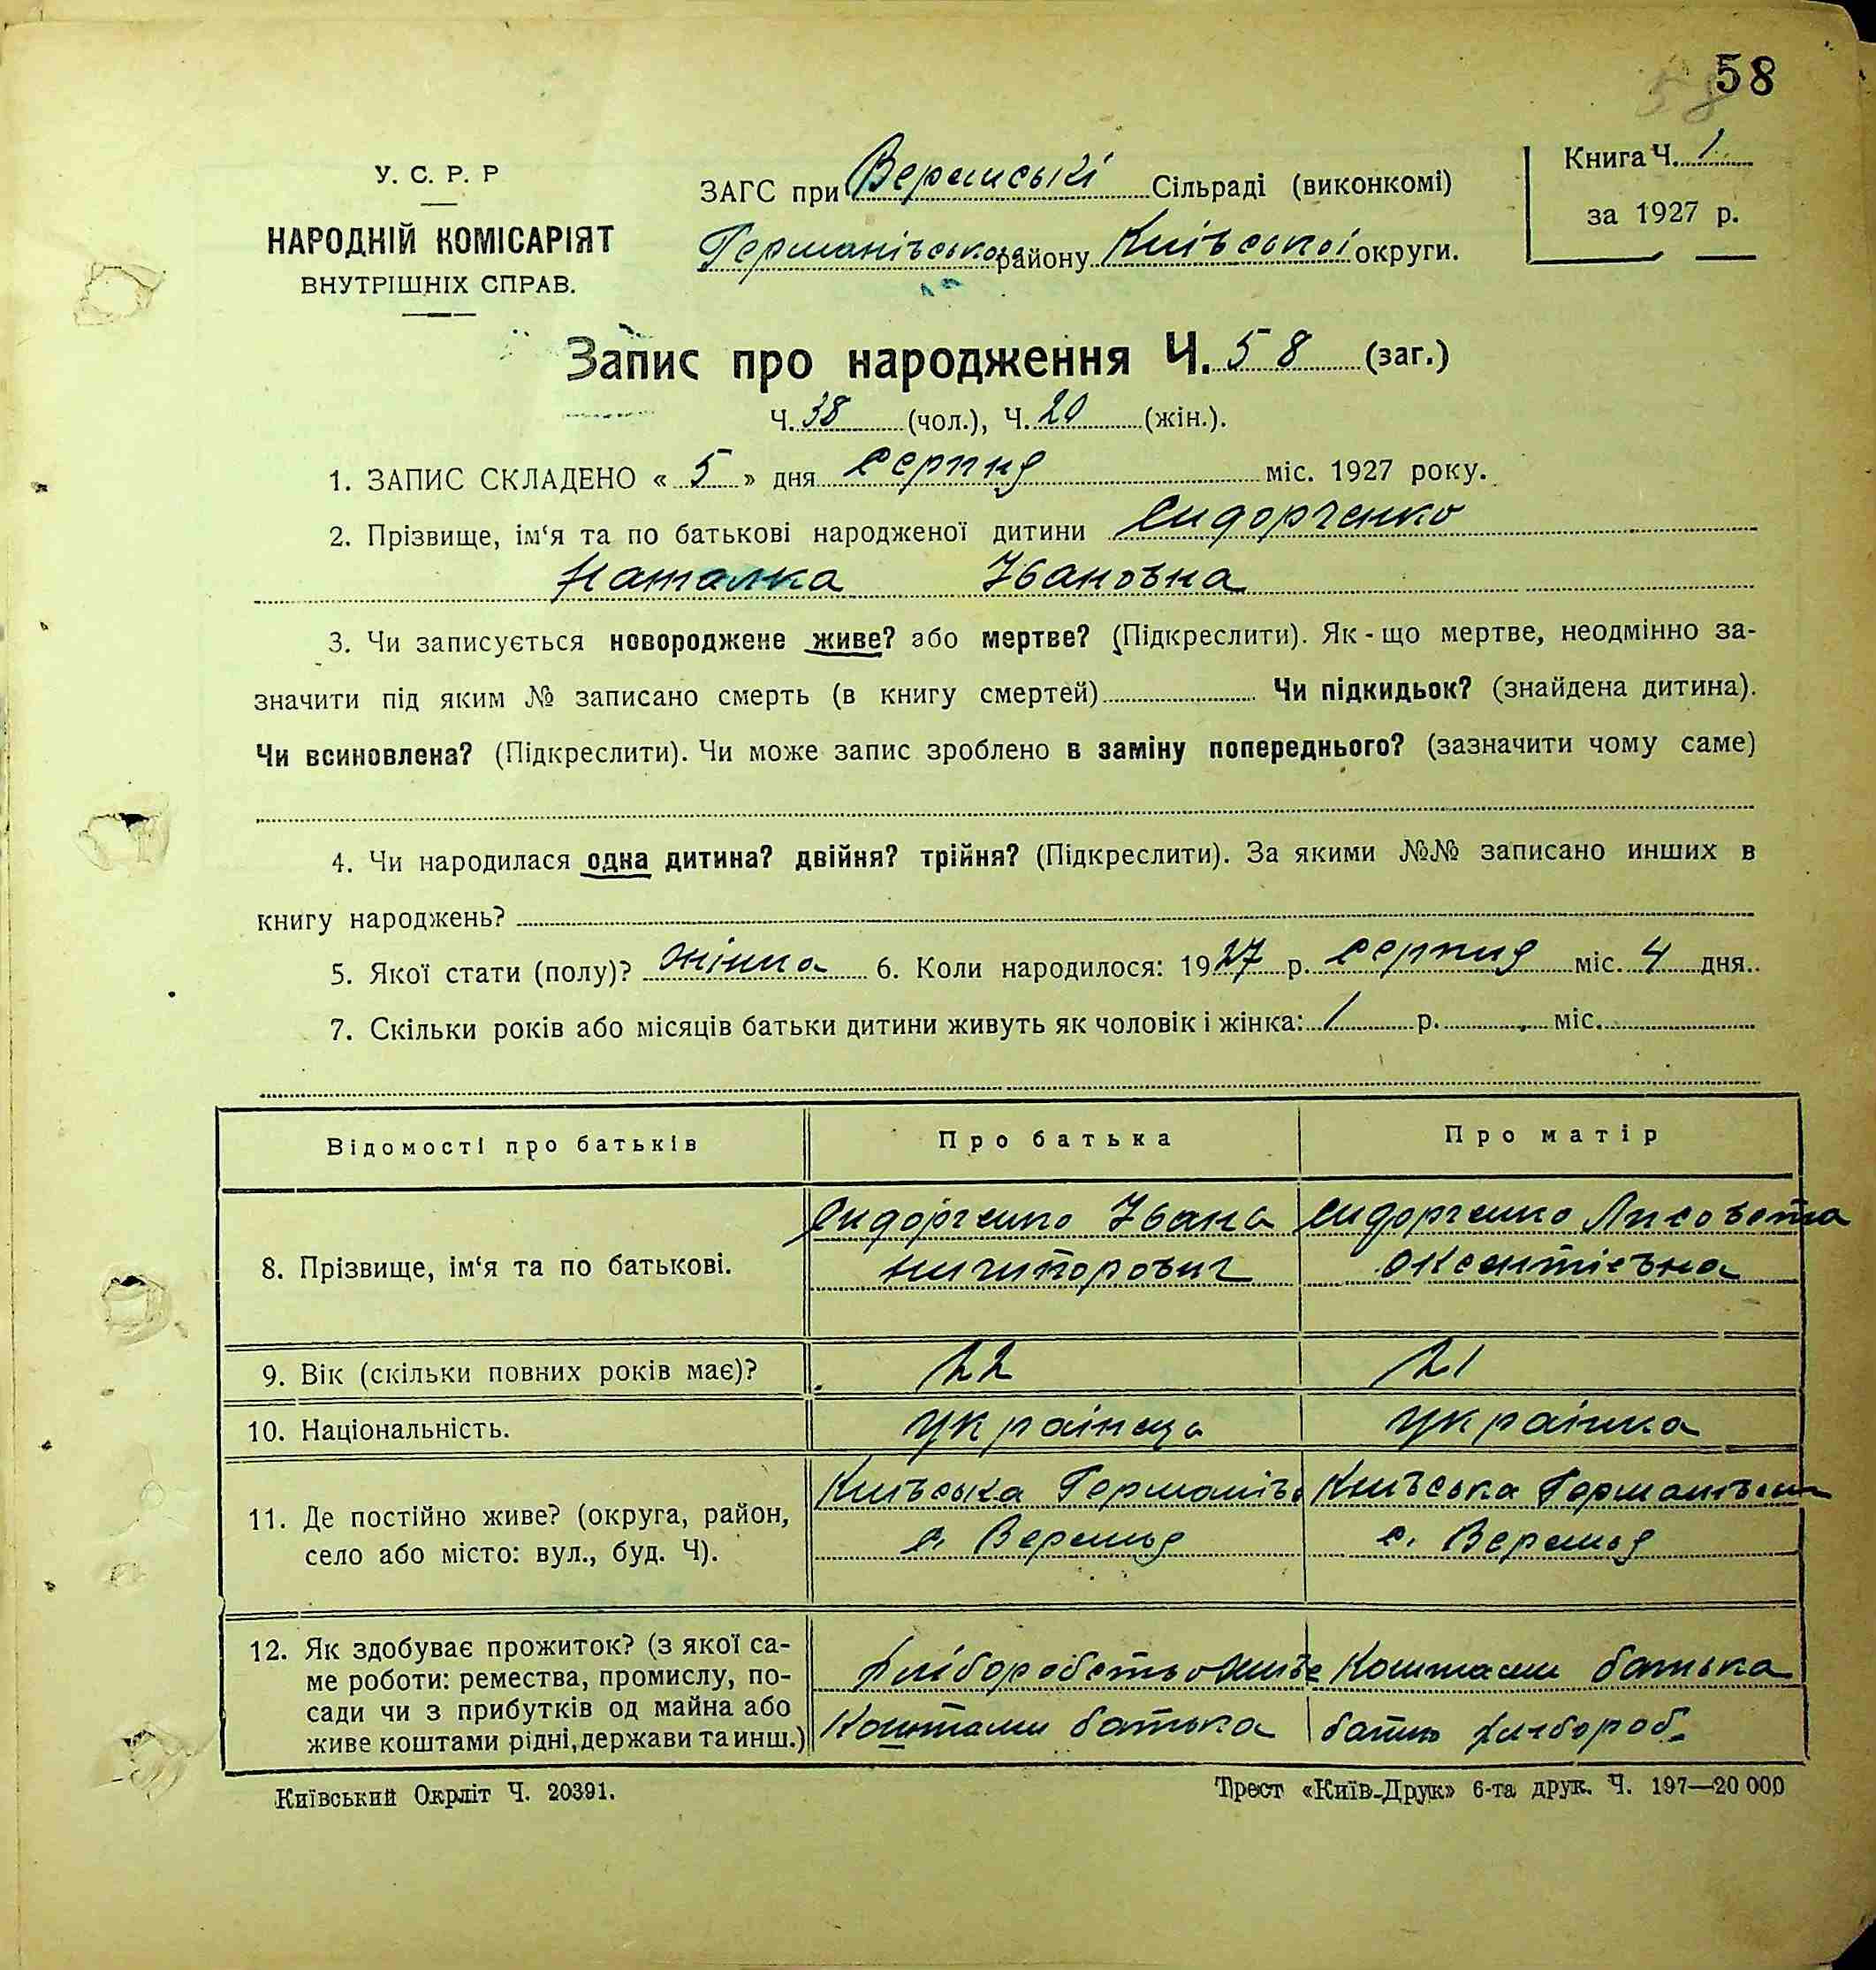 58
58
У. С. Р. Р
НАРОДНІЙ КОМІСАРІЯТ
ВНУТРІШНІХ СПРАВ.
ЗАГС при Веремській Сільраді (виконкомі)
Германівсько району Київської округи.
Книга Ч. 1
за 1927 р.
Запис про народження Ч. 58 (заг.)
Ч. 38 (чол.), Ч. 20 (жін.).
1. ЗАПИС СКЛАДЕНО « 5 » дня серпня міс. 1927 року.
2. Прізвище, ім‘я та по батькові народженої дитини Сидорченко
Наталка Івановна
3. Чи записується новороджене живе? або мертве? (Підкреслити). Як-що мертве, неодмінно за-
значити під яким № записано смерть (в книгу смертей) Чи підкидьок? (знайдена дитина).
Чи всиновлена? (Підкреслити). Чи може запис зроблено в заміну попереднього? (зазначити чому саме)
4. Чи народилася одна дитина? двійня? трійня? (Підкреслити). За якими №№ записано инших в
книгу народжень?
5. Якої стати (полу)? жінка 6. Коли народилося: 1927 р. серпня міс. 4 дня.
7. Скільки років або місяців батьки дитини живуть як чоловік і жінка: 1 р. міс.
Відомості про батьків Про батька Про матір
8. Прізвище, ім‘я та по батькові.
Сидорченко Івана
Ничипорович
Сидорченко Лисовета
Оксентієвна
9. Вік (скільки повних років має)? 22 21
10. Національність. українець українка
11. Де постійно живе? (округа, район,
село або місто: вул., буд. Ч).
Київська Германівс
с. Веремья
Київська Германівськ
с. Веремья
12. Як здобуває прожиток? (з якої са-
ме роботи: ремества, промислу, по-
сади чи з прибутків од майна або
живе коштами рідні, держави та инш.)
хліборобство живе
Коштами батька
Коштами батька
батько хлібороб.
Київський Окрліт Ч. 20391.
Трест «Київ-Друк» 6-та друк. Ч. 197—20 000